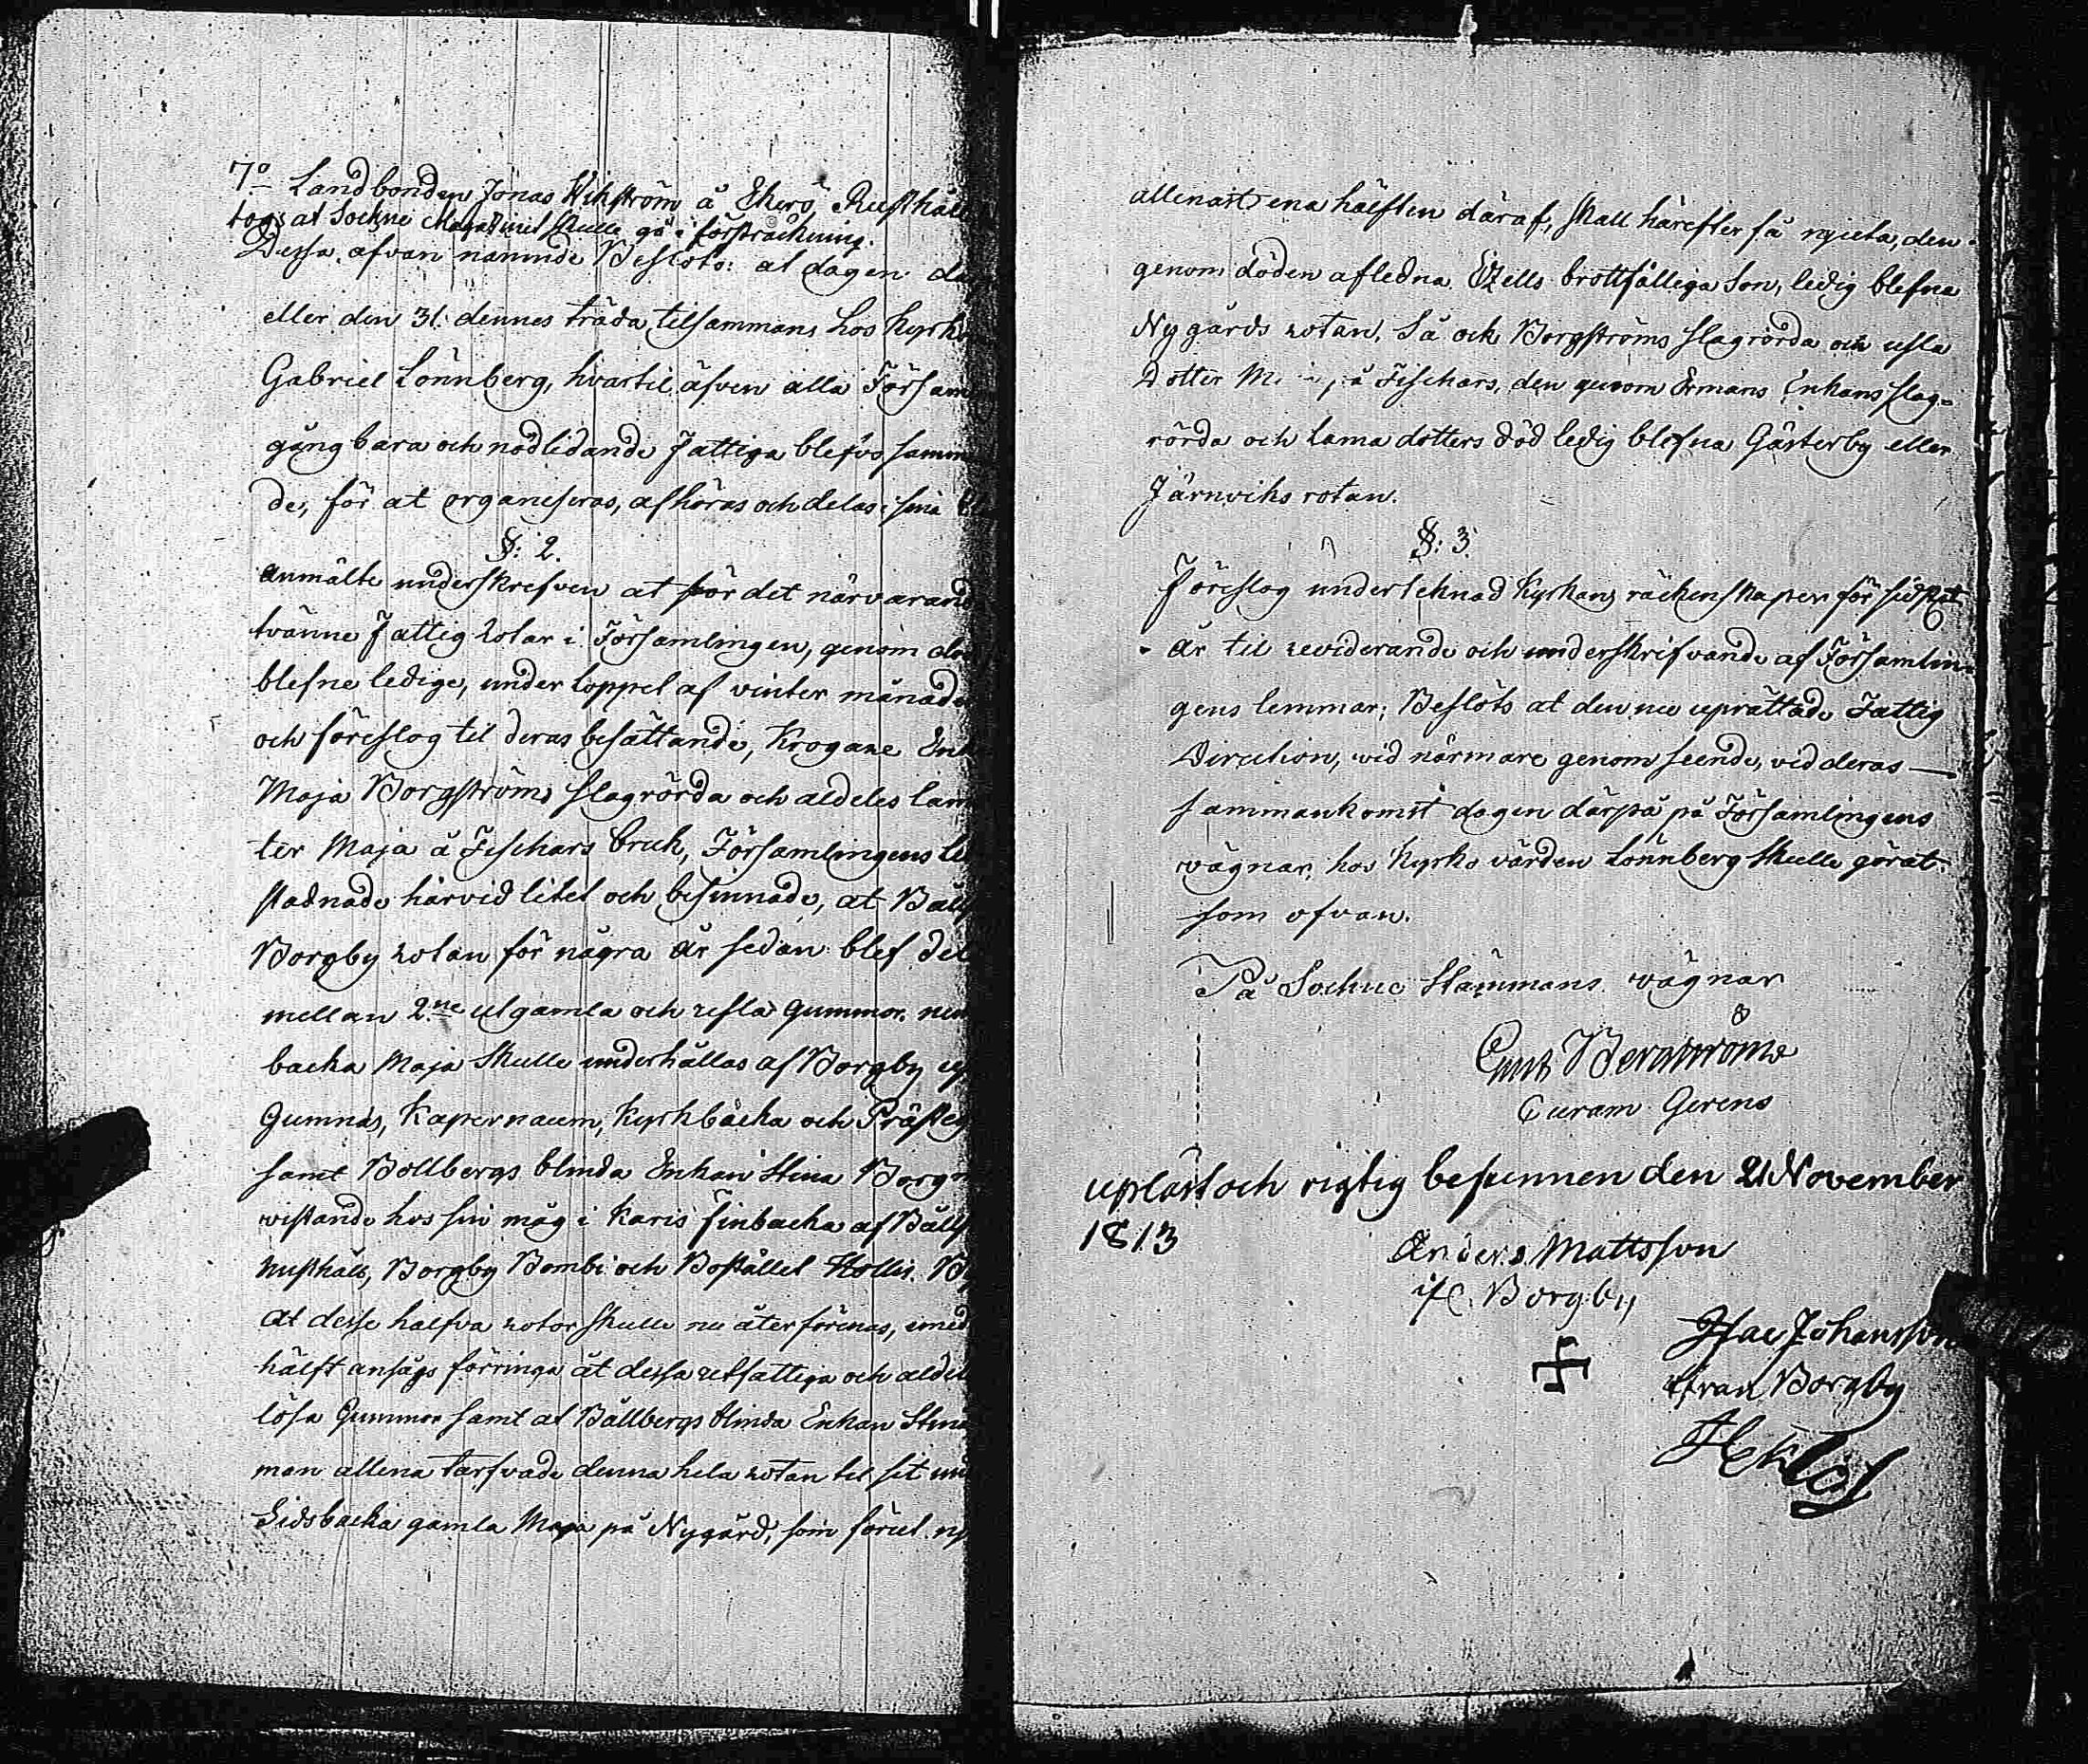 7o Landbonden Jonas Wikström å Ekerö Rusthål
togs at Sockne Magazinet skulle gå i försträckning.
Dessa ofvan nämnde Beslöts: at dagen de
eller den 31. dennes träda tilsammans hos Kyrko
Gabriel Lönnberg, hvartil äfven alla Församl
gångbara och nödlidande Fattiga blefvo samm
de, för at organiseras, afhöras och delas i sina
§: 2.
Anmälte underskrefven at för det närvarand
tvänne Fattig Rotar i Församlingen, genom
blefne ledige, under loppet af vinter månade
och föreslog til deras besättande, Krogare Enk
Maja Borgströms slagrörda och aldeles lam
ter Maja å Fischars bruk, Församlingens le
stadnade härvid litet och besinnade, at Bäll
Borgby rotan för några år sedan blef del
mellan 2ne utgamla och usla Gummor. nem
backa Maja skulle underhållas af Borgby
Gumnäs, Kapernaum, Kyrkbacka och Präste
samt Bollbergs blinda Enkan Stina Borg
wistande hos sin måg i Karis Finbacka af Bäll
Rusthåls, Borgby Bombi och Bostället
At desse halfva rotor skulle nu återförenas, emed
hälft ansågs förringa åt dessa utfattiga och aldel
lösa Gummor samt at Bällbergs blinda Enkan Stina
man allena tarfvade denna hela rotan til sit un
Sidsbacka gamla Maja på Nygård, som förut ny
allenast ena hälften däraf, skall härefter få njuta, den
genom döden afledna Ezells brottfälliga Son, ledig blefne
Nygårds rotan. Så ock Borgströms slagrörda och usla
Dotter på Fischars, den genom Ermans Enkans slag-
rörda och lama dotters död ledig blefna Gästerby eller
Järnviks rotan.
§: 3.
Föreslog undertecknad Kyrkans räkenskaper för sidst
år til reviderande och underskrifvande af Församlin-
gens lemmar; Beslöts at den nu uprättade Fattig
Direction, wid närmare genomseende, vid deras
sammankomst dagen därpå på Församlingens
wägnar, hos Kyrko värden Lönnberg skulle görat.
som ofvan.
På Sockne Stämmans wägnar
Bergström
Curam Gerens
uplöst och rigtig befunnen den 21 November
1813
Anders Mattsson
Borgby
Isac Johansson
ifran Borgby